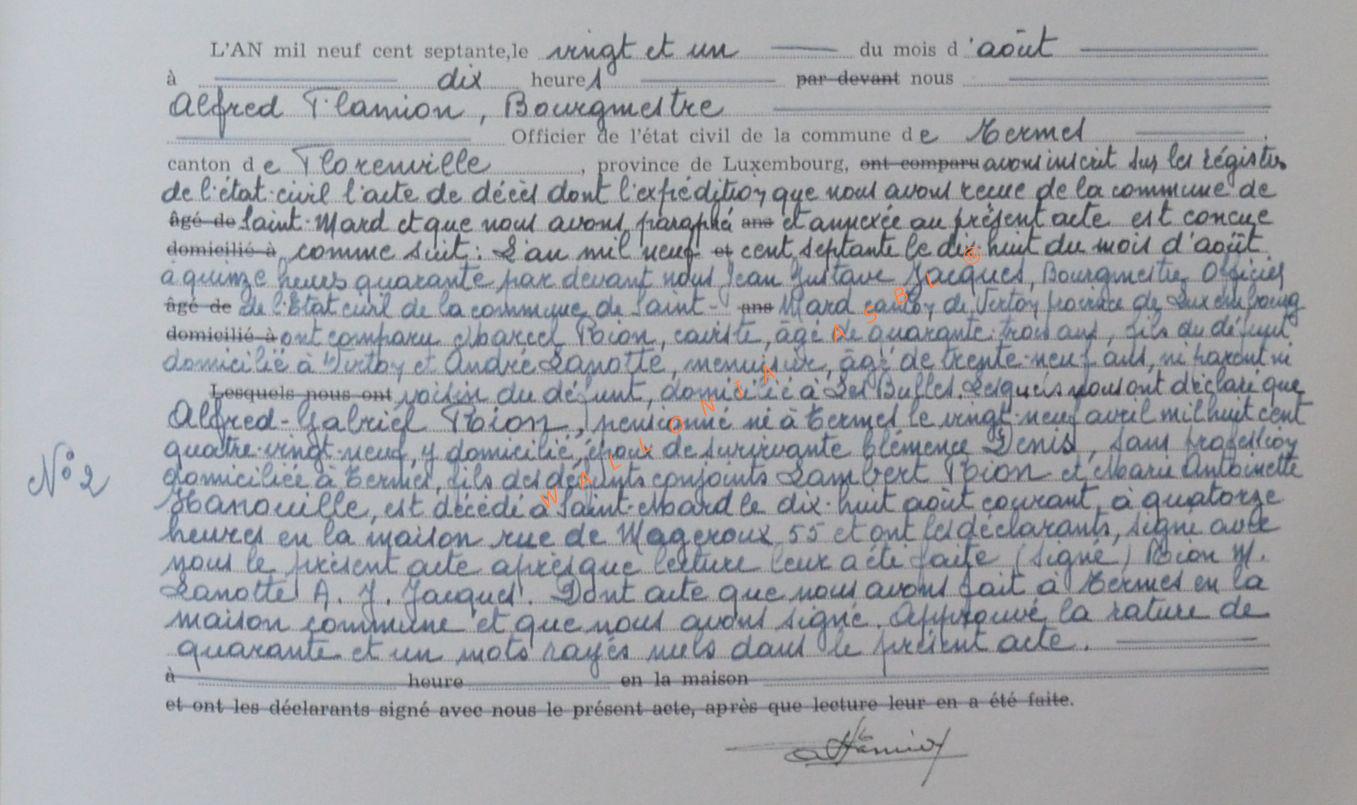 L'AN mil neuf cent septante, le vingt et un du mois d'août
à dix heures par devant nous
Alfred Flamion, Bourgmestre
Officier de l'état civil de la commune de Termes
canton de Florenville, province de Luxembourg, ont comparu avons inscrit sur les régistres
de l'état-civil l'acte de décès dont l'expédition que nous avons reçue de la commune de
âgé de Saint-Mard et que nous avons paraphé ans et annexée au présent acte est conçue
domicilié à comme suit: L'an mil neuf et cent septante le dix-huit du mois d'août
à quinze heures quarante par devant nous Jean Gustave Jacques, Bourgmestre Officier
âgé de de l'Etat civil de la commune de Saint- ans Mard canton de Virton province de Luxembourg
domicilié à ont comparu Marcel Poion, cariste, âgé de quarante-trois ans, fils du défunt
domicilié à Virton et André Lanotte, menuisier, âgé de trente-neuf ans, ni parent ni
Lesquels nous ont voisin du défunt, domicilié à Les Bulles. Lesquels nous ont déclaré que
Alfred-Gabriel Poion, pensionné né à Termes le vingt-neuf avril mil huit cent
quatre-vingt-neuf, y domicilié, époux de survivante Clémence Denis, sans profession
N° 2
domiciliée à Termes, fils des défunts conjoints Lambert Poion et Marie Antoinette
Hanouille, est décédé à Saint-Mard le dix-huit août courant, à quatorze
heures en la maison rue de Mageroux 55 et ont les déclarants, signé avec
nous le présent acte après que lecture leur a été faite (signé) Poion M.
Lanotte A. J. Jacques. Dont acte que nous avons fait à Termes en la
maison commune et que nous avons signé. Approuvé la rature de
quarante et un mots rayés nuls dans le présent acte.
à heure en la maison
et ont les déclarants signé avec nous le présent acte, après que lecture leur en a été faite.
WALLONIA ASBL ©